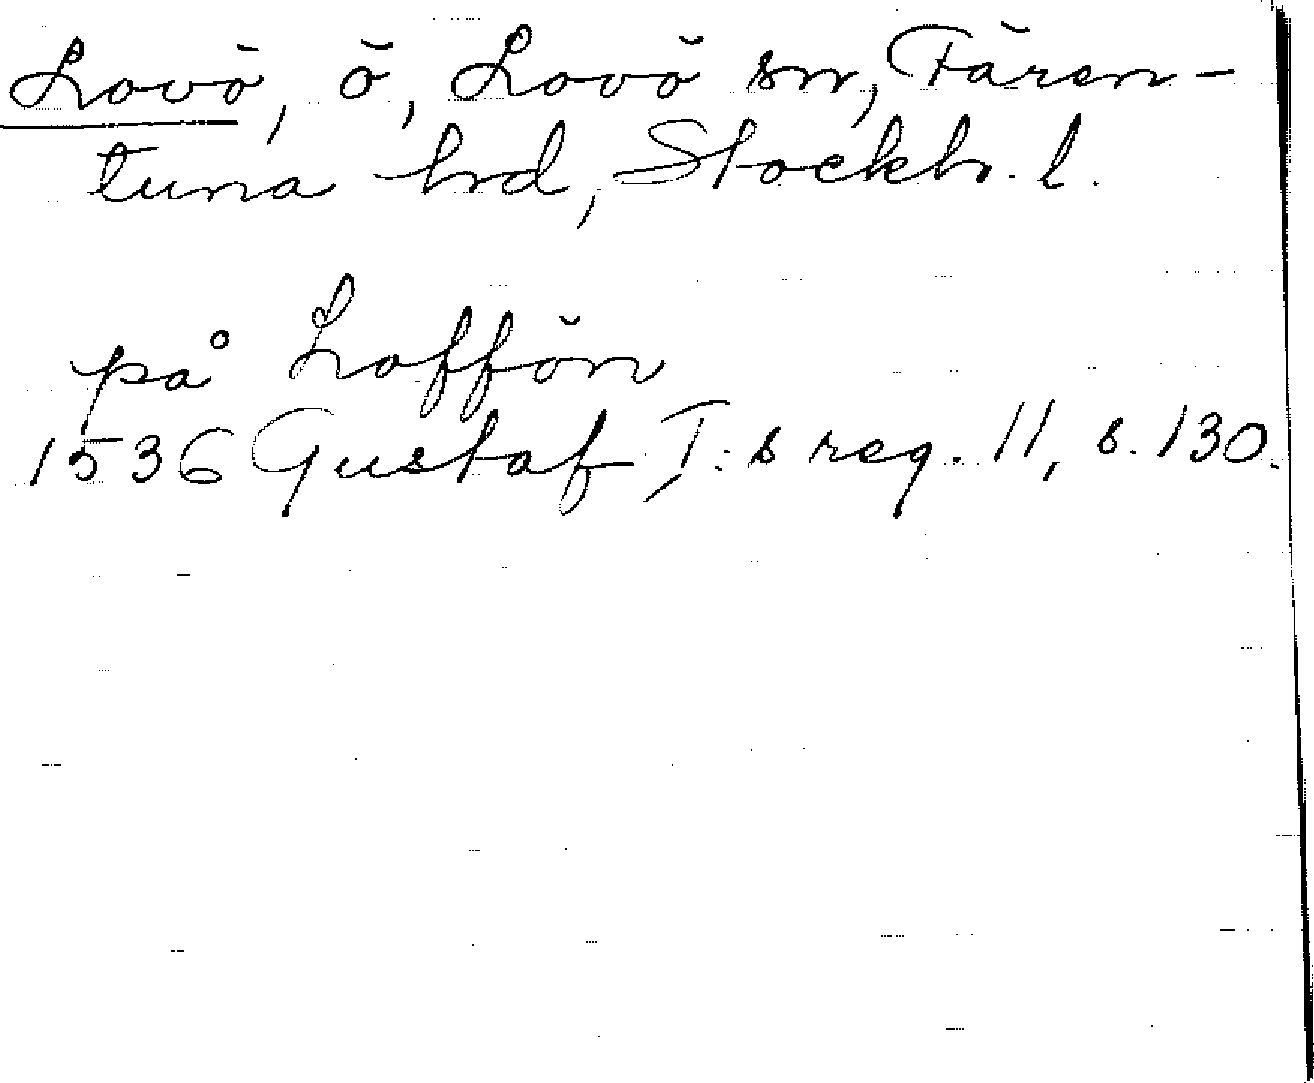 Lovö, ö, Lovö sn, Fären-
tuna hrd, Stockh. l.
på Loffön
1536 Gustaf I:s reg. 11, s. 130.